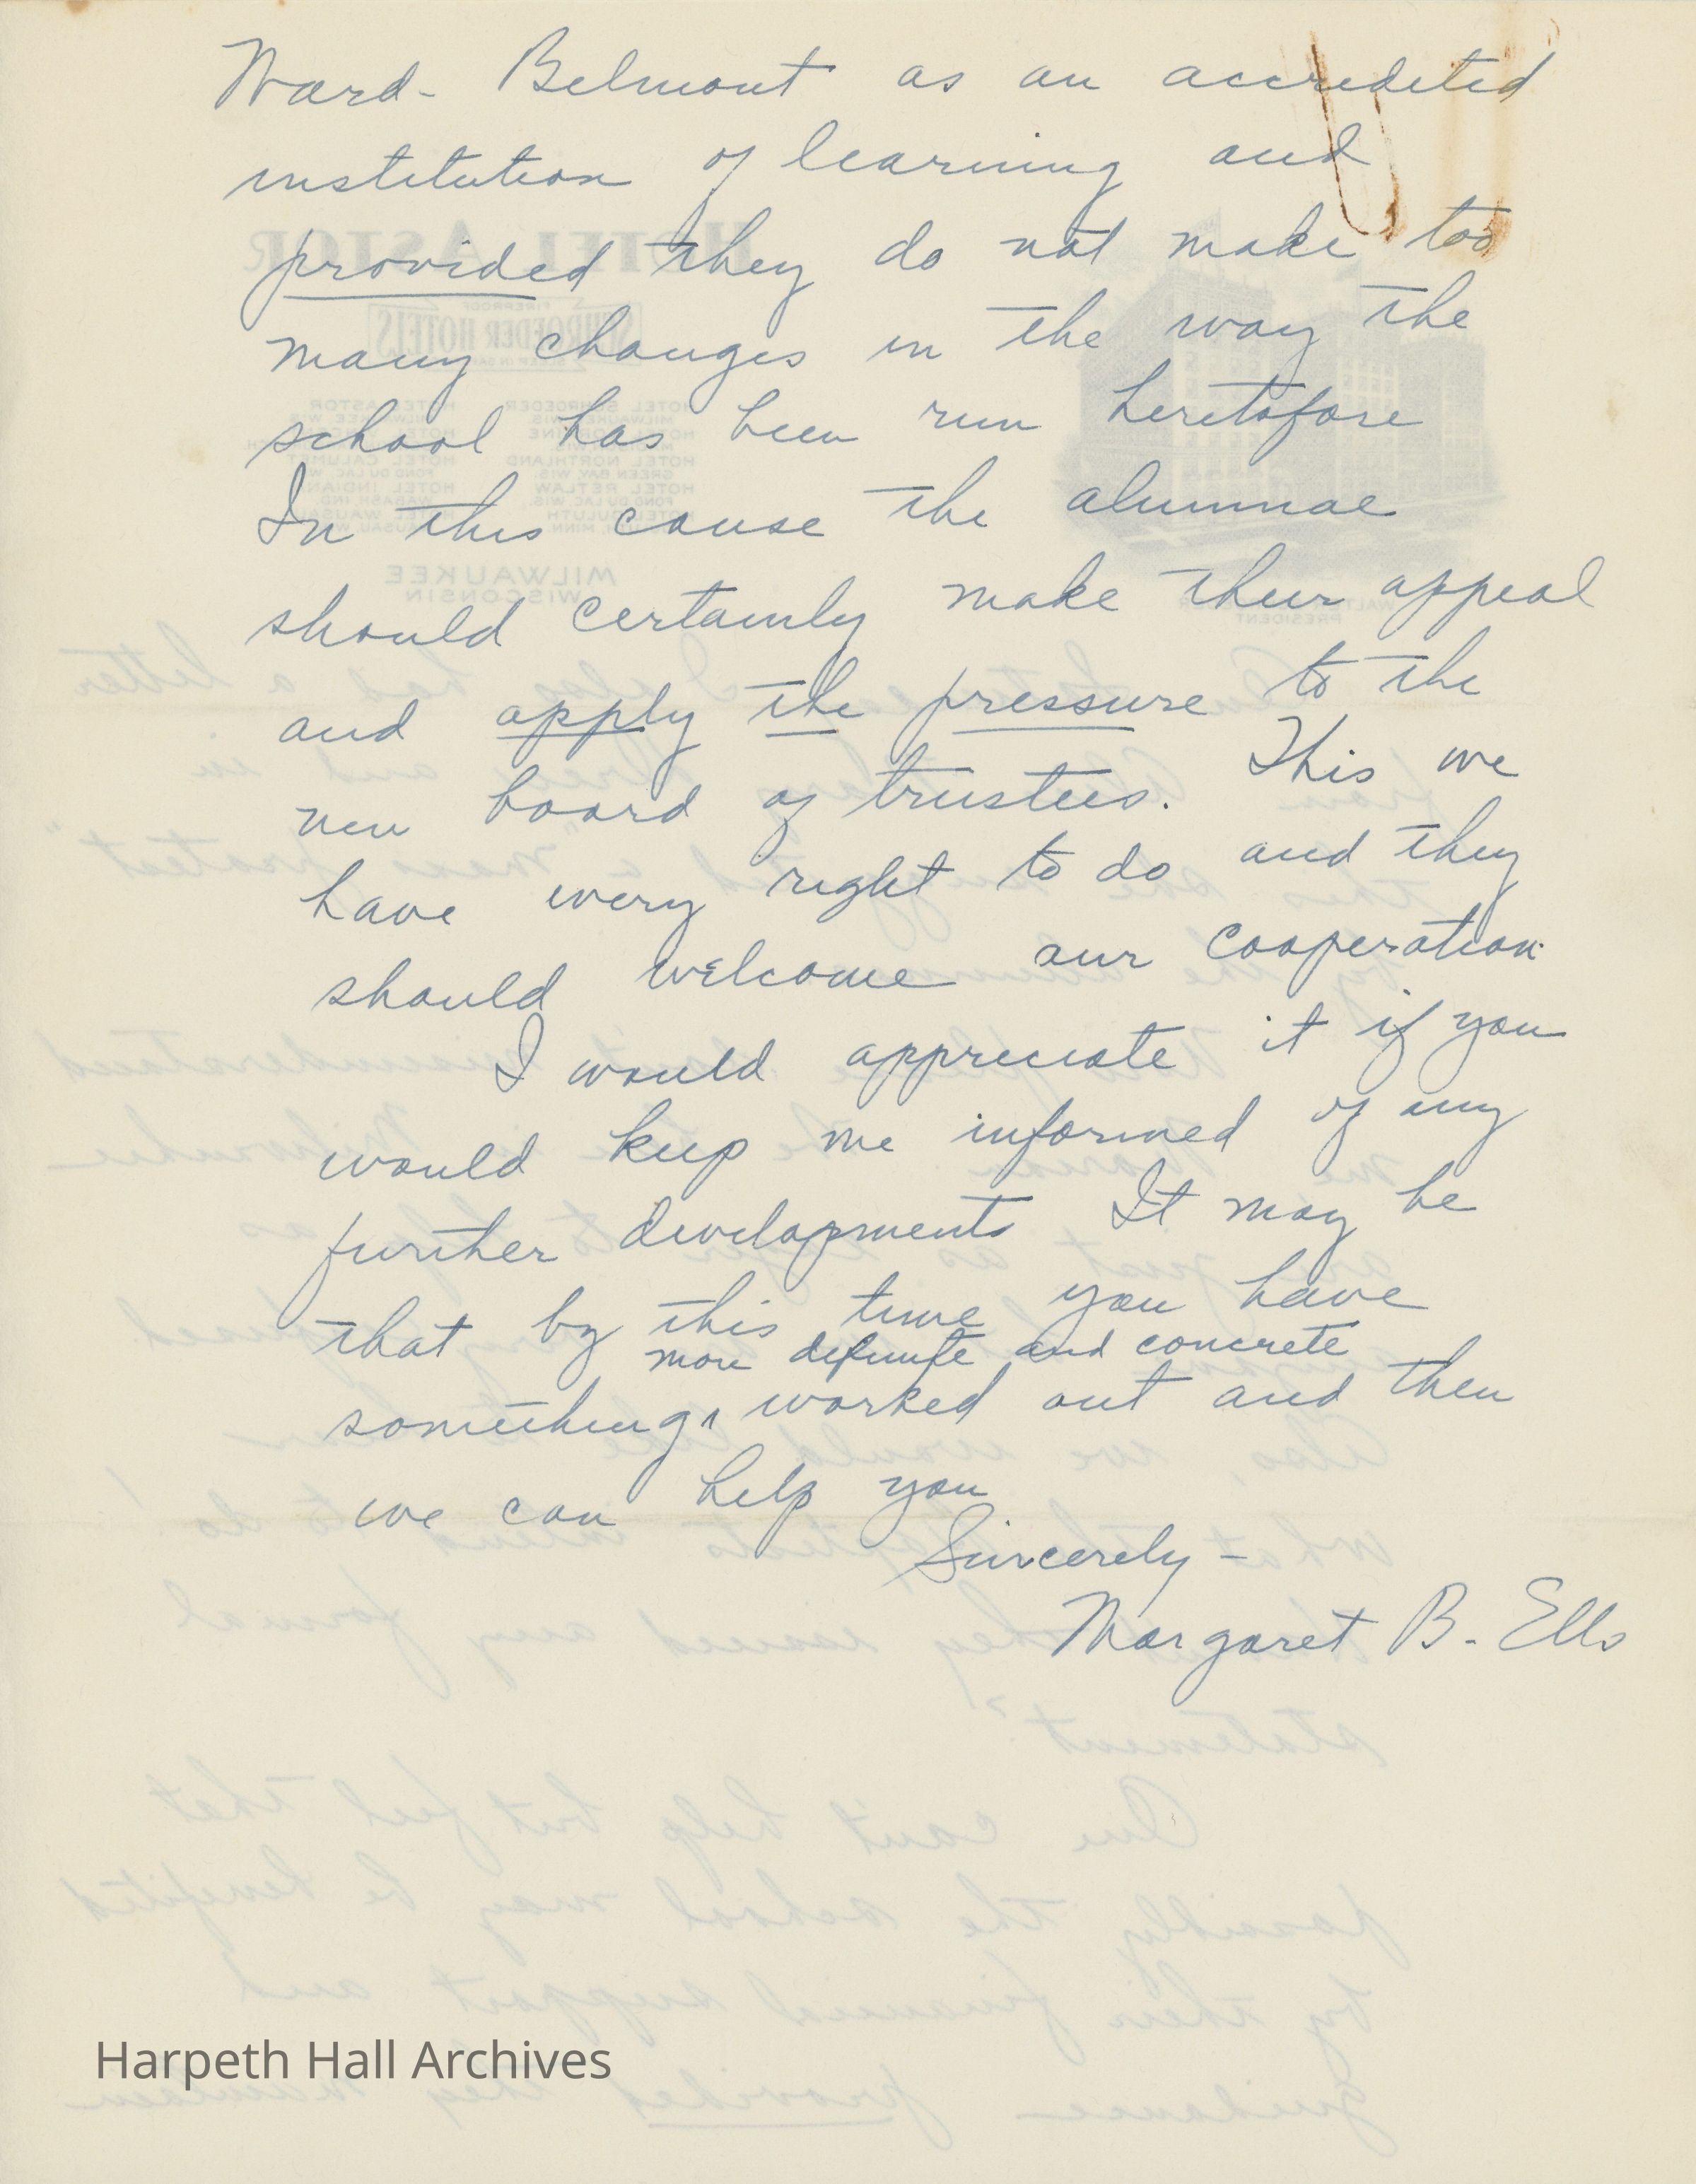 Ward-Belmont as an accredited
institution of learning and
provided they do not make too
many changes in the way the
school has been run heretofore
In this cause the alumnae
should certainly make their appeal
and apply the pressure to the
new board of trustees. This we
have every right to do and they
should welcome our cooperation.
I would appreciate it if you
would keep me informed of any
further developments It may be
that by this time you have
more definite and concrete
something ‸ worked out and then
we can help you
Sincerely -
Margaret B. Ells
Harpeth Hall Archives